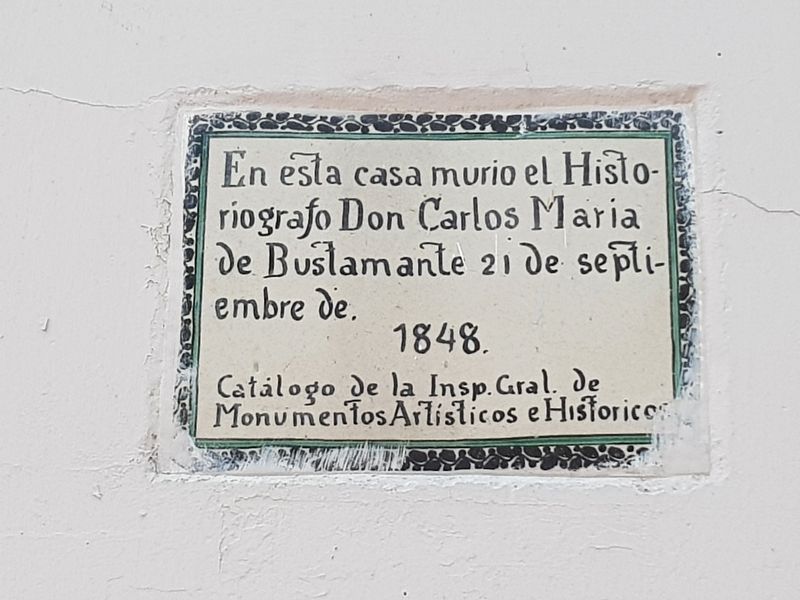 En esta casa murio el Histo-
riografo Don Carlos Maria
de Bustamante 21 de septi-
embre de.
1848.
Catálogo de la Insp. Gral. de
Monumentos Artísticos e Historicos